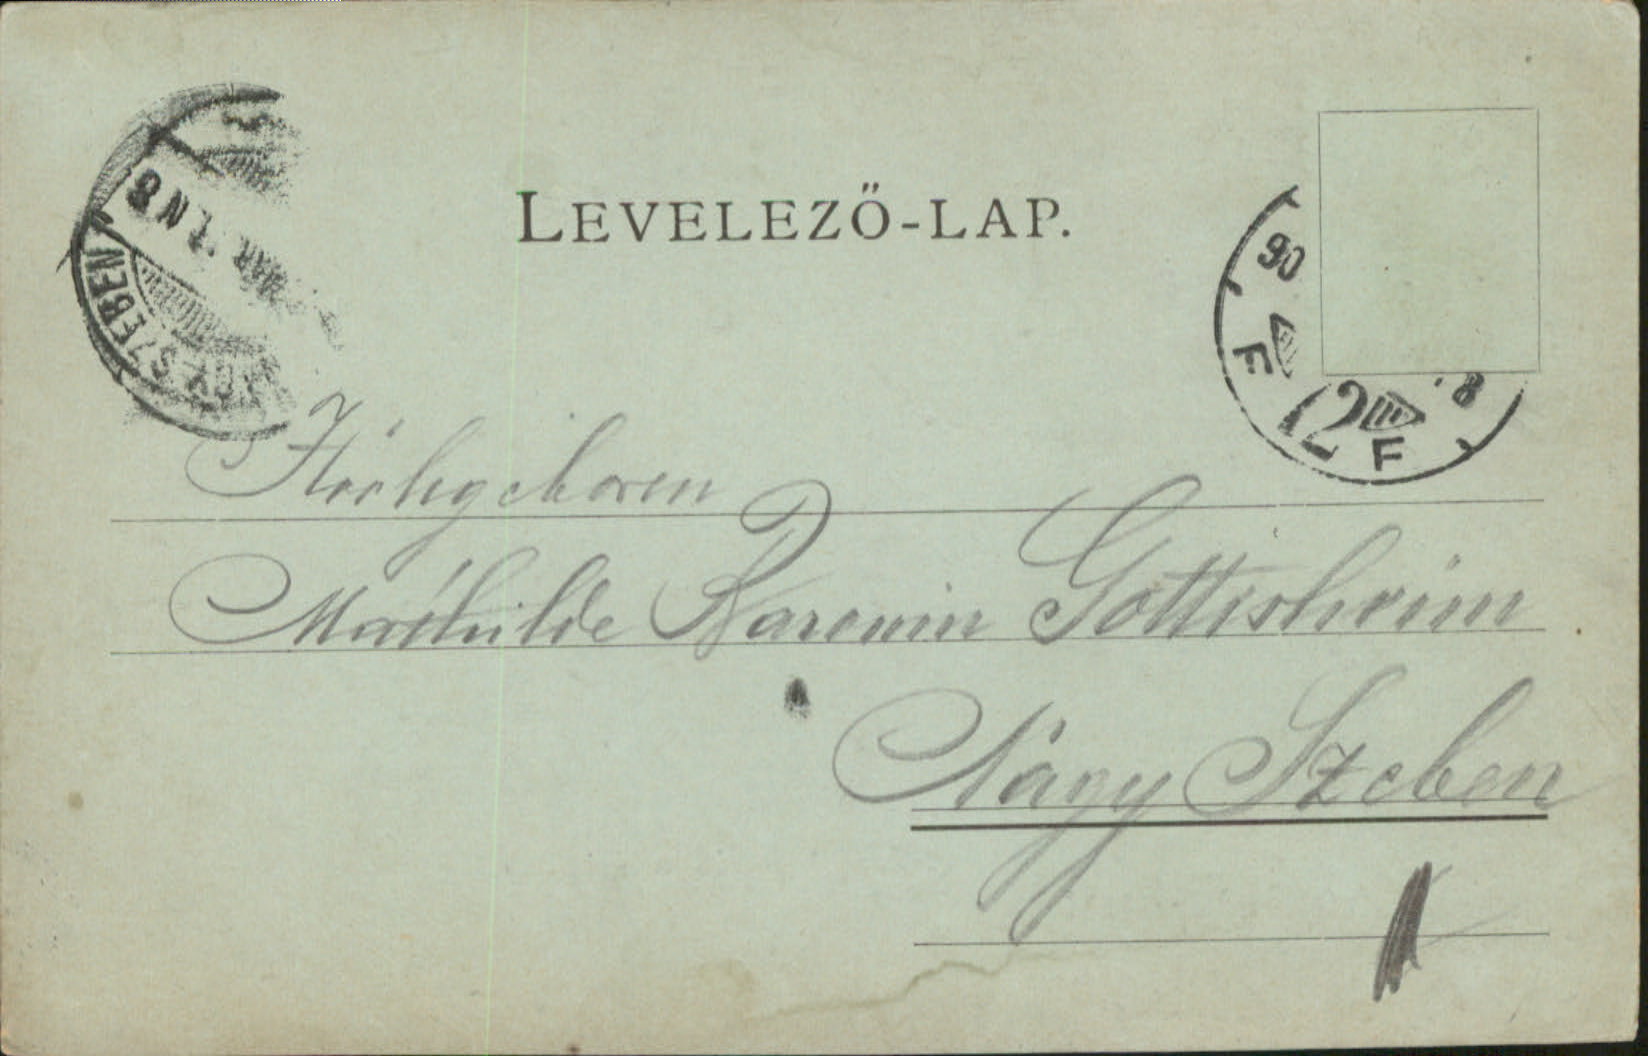 LEVELEZŐ-LAP.
SZEBEN
N 8
90
8
F 12 F
Hochgeboren
Mathilde Baronin Gottesheim
Nagy Szeben